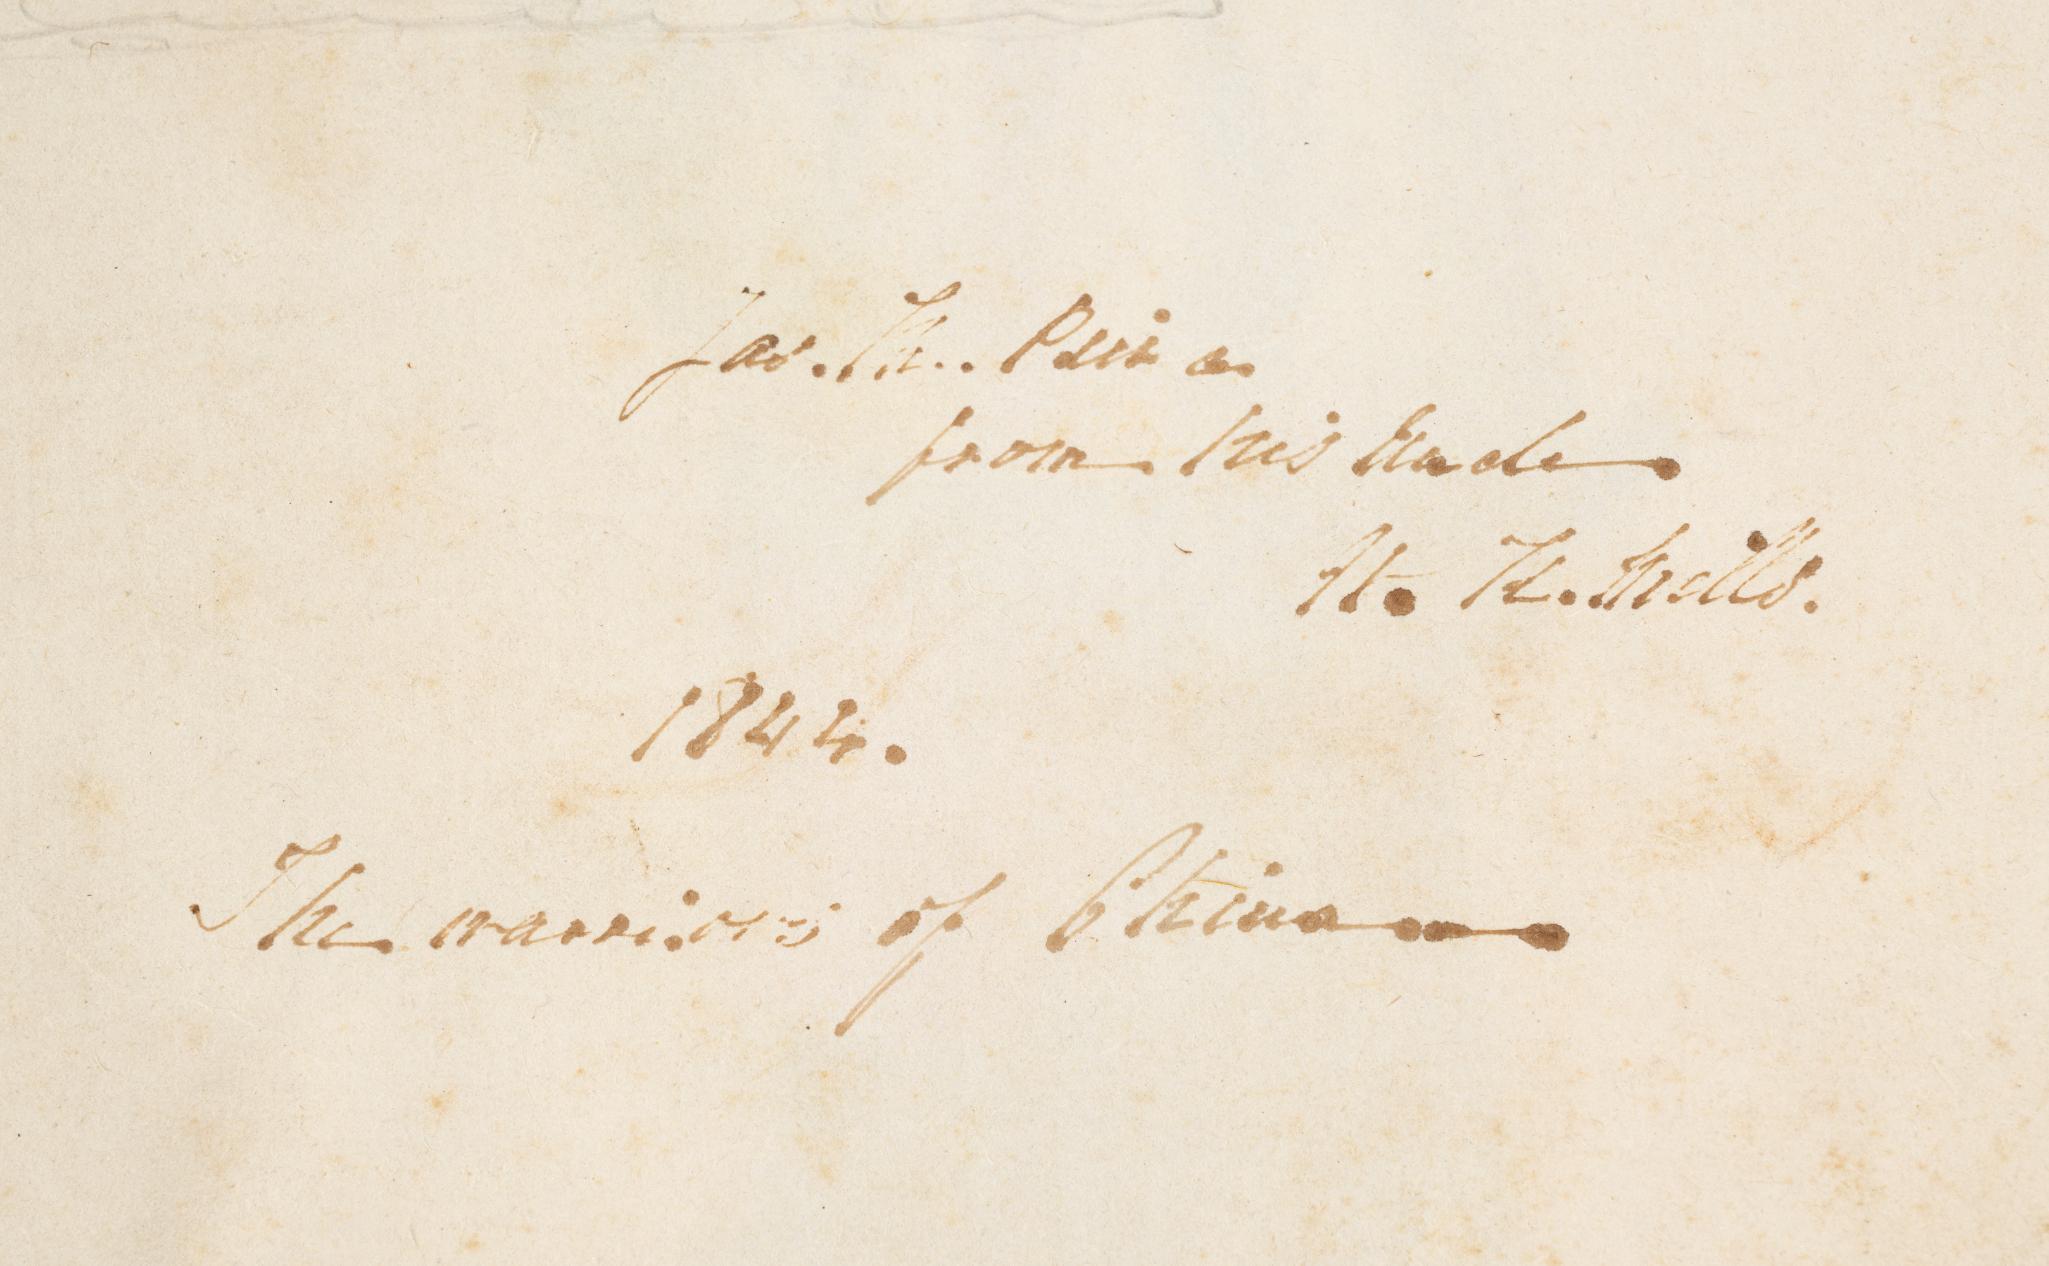 Jas. Th. Prin
from his Uncle
H. H. Mills.
1844.
The warriors of China